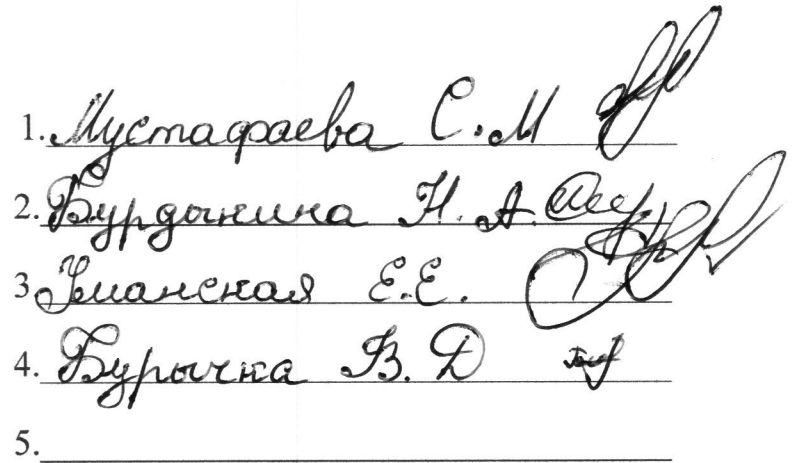 1. Мустафаева С.М
2. Бурдынина Н. А.
3 Уманская Е.Е.
4. Бурычка В. Д
5.